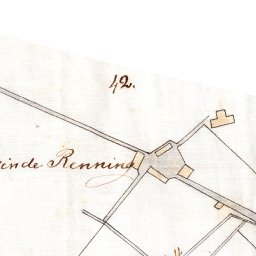 42.
inde Renning